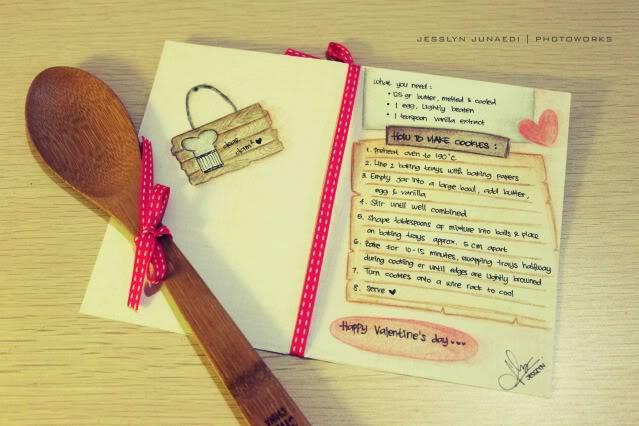 JESSLYN JUNAEDI | PHOTOWORKS
What you need :
• 125 gr butter, melted & cooled
• 1 egg, lightly beaten
• 1 teaspoon vanilla extract
HOW TO MAKE COOKIES :
1. Preheat oven to 190°c
2. Line 2 baking trays with baking papers
3. Empty jar into a large bowl, add butter,
egg & vanilla
4. Stir until well combined
5. Shape tablespoons of mixture into balls & place
on baking trays approx. 5 cm apart
6. Bake for 10-15 minutes, swapping trays halfway
during cooking or until edges are lightly browned
7. Turn cookies onto a wire rack to cool
8. Serve ♥
Happy Valentine's day...
JESSLYN